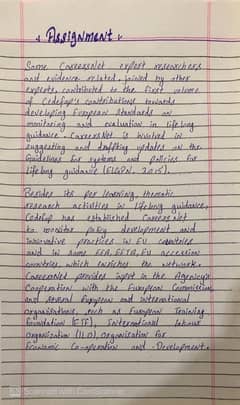 Assignment
Some CareersNet expert researchers
and evidence related, joined by other
experts, contributed to the first volume
of Cedefop's contributions towards
developing European Standards on
monitoring and evaluation in lifelong
guidance. CareersNet is involved in
suggesting and drafting updates on the
Guidelines for systems and policies for
lifelong guidance (ELGPN, 2015).
Besides its peer learning, thematic
research activities in lifelong guidance,
Cedefop has established CareersNet
to monitor policy development and
innovative practices in EU countries
and in some EEA, EFTA, EU accession
countries which enriches the network.
CareersNet provides input in the Agency's
Cooperation with the European Commission
and several European and international
organisations, such as European Training
Foundation (ETF), International Labour
Organisation (ILO), Organisation for
Economic Co-operation and Development.
Scanned with CamScanner